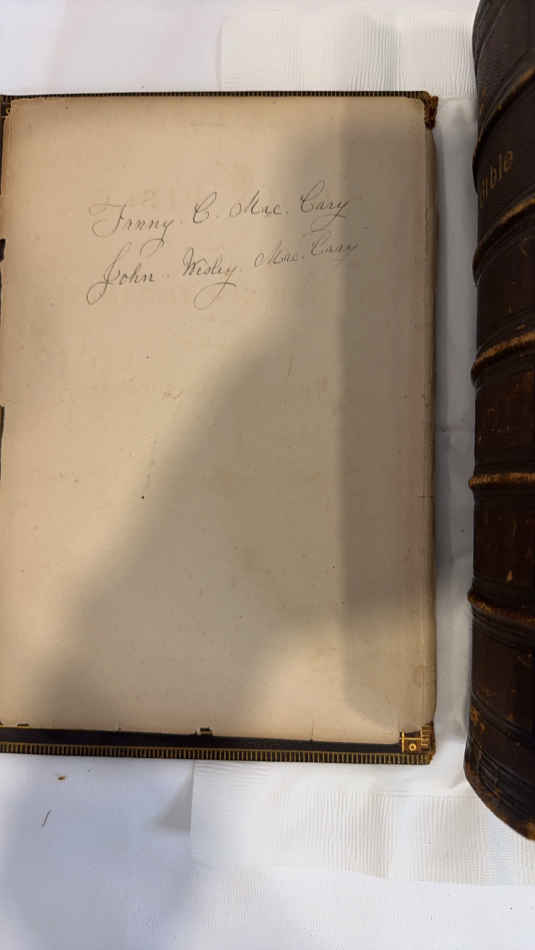 Fanny. C. Mac. Cary
John.. Wesley. Mac. Cary
Bible